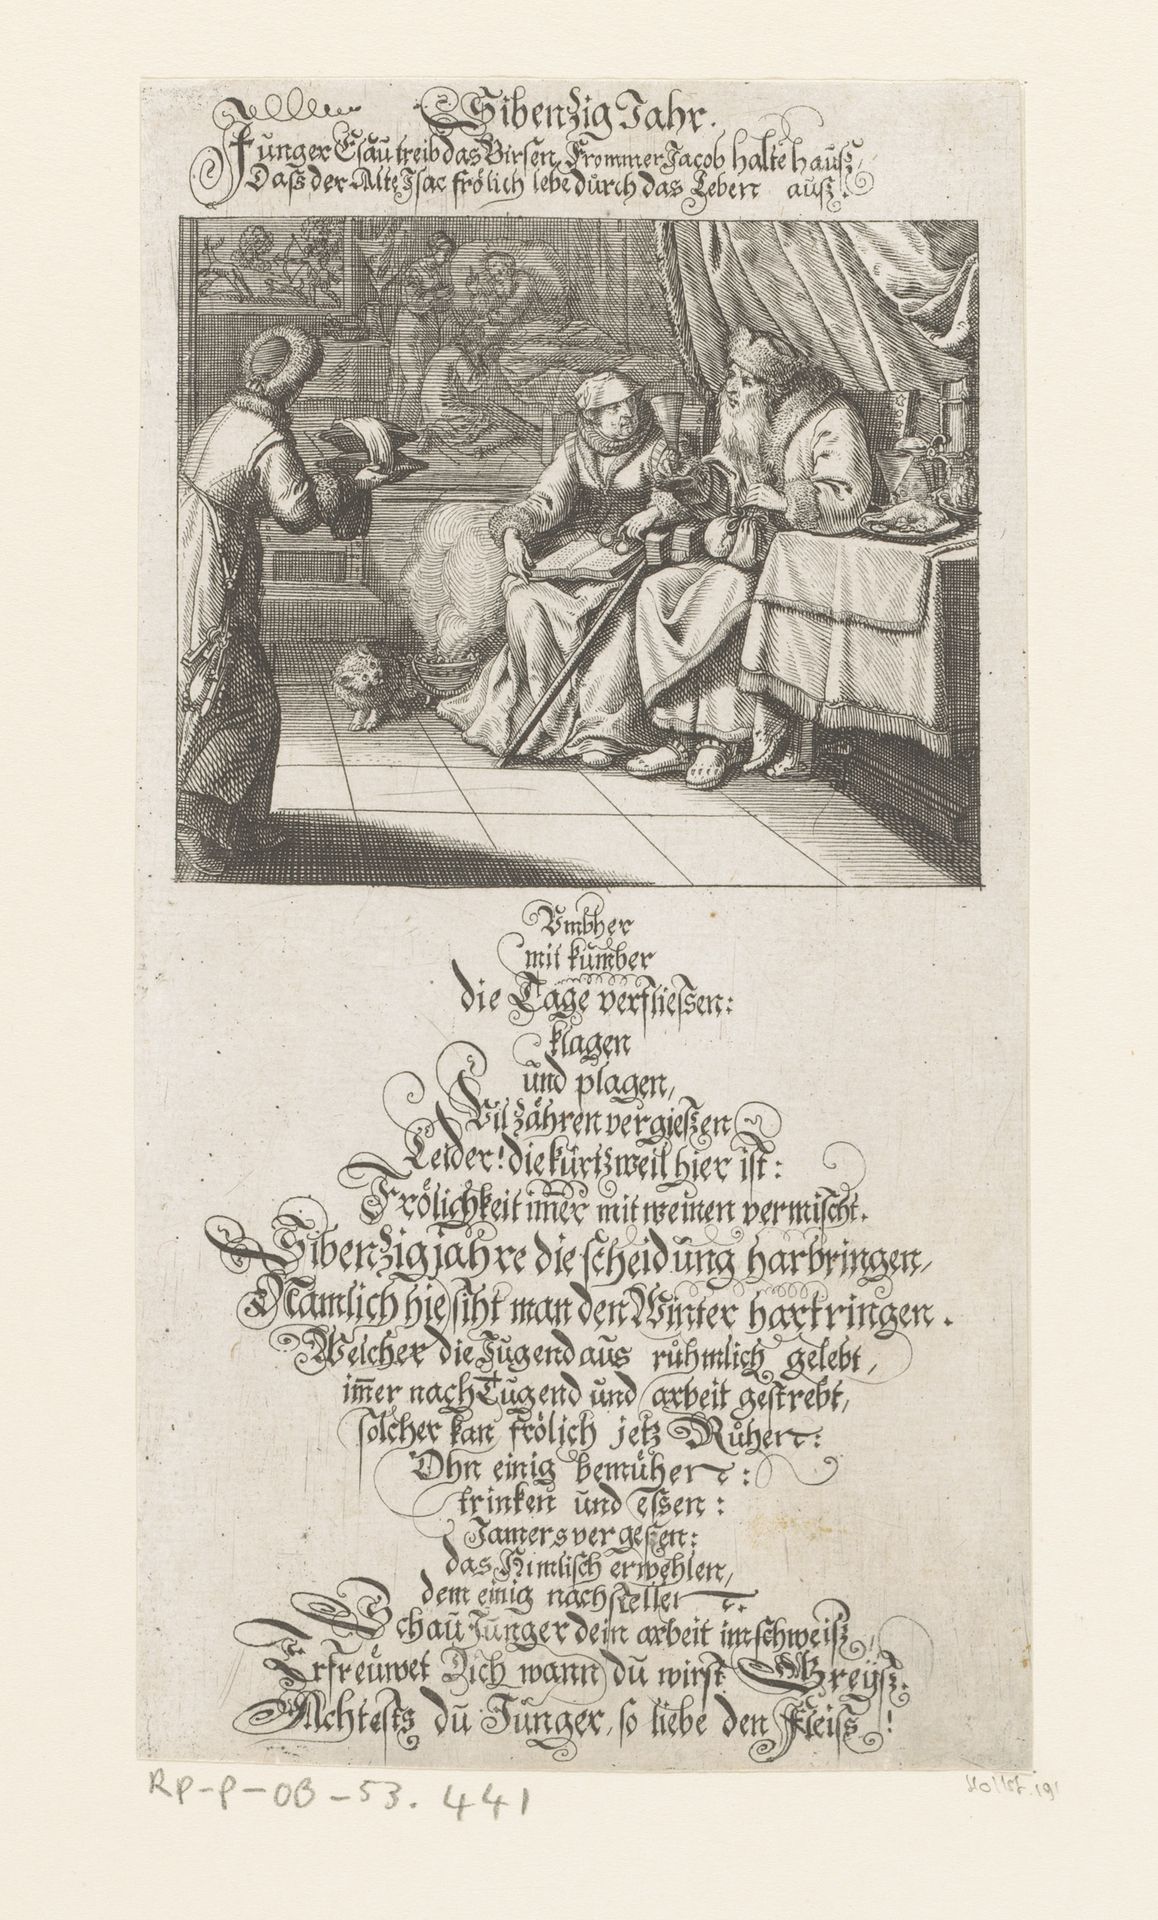 Sibenzig Jahr.
Junger Esau treib das Birsen, Frommer Jacob halte hauß,
Daß der Alte Isac frölich lebe durch das Leben auß.
Vmbher
mit kumber
die Tage verfliessen:
klagen
und plagen,
Vil zähren vergießen
Leider! die kurtzweil hier ist:
Frölichkeit im̄er mit weinen vermischt.
Sibenzig jahre die scheidung harbringen,
Namlich hie siht man den Winter hartringen.
Welcher die Jugend aus růhmlich gelebt,
im̄er nach Tugend und arbeit gestrebt,
solcher kan frölich jetz Růhen:
Ohn einig bemůhen:
trinken und essen:
Jamers vergessen:
das Himlisch erwehlen,
dem einig nachstellen.
Schau Junger dein arbeit im schweiß,
Erfreüwet Dich wann du wirst Greyß.
Achtests du Junger, so liebe den Fleiß!
RP-P-OB-53.441
Hollst. 19